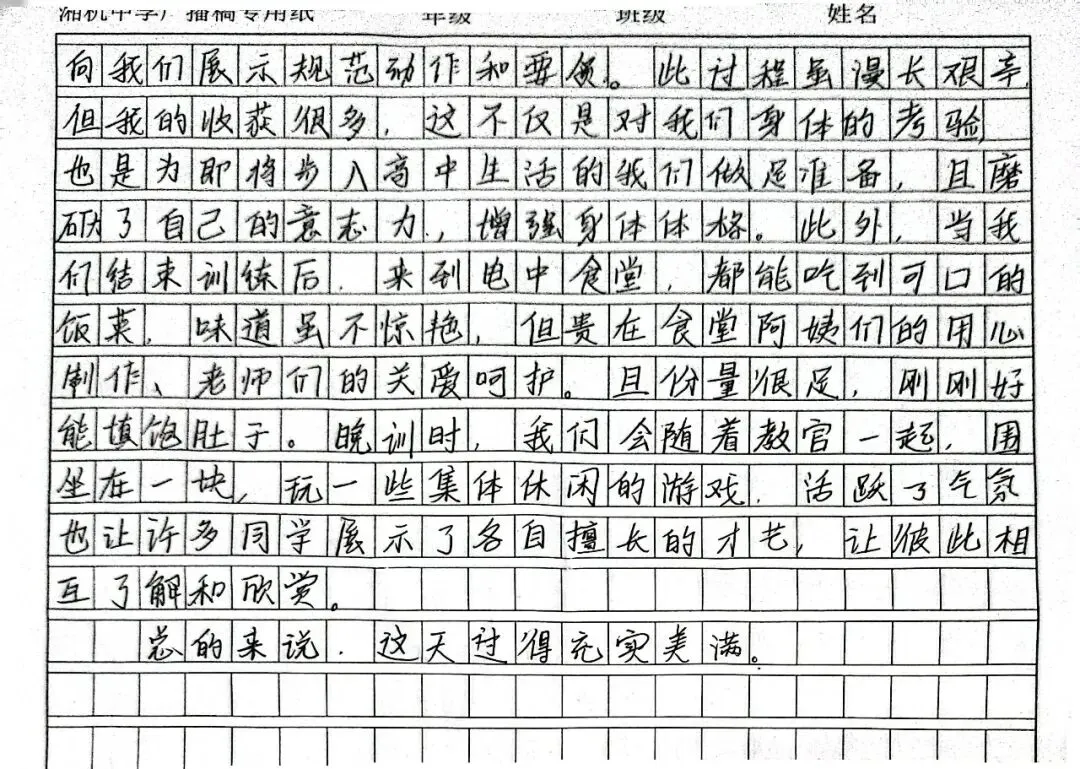 湘机中学广播稿专用纸 年级 班级 姓名
向我们展示规范动作和要领。此过程虽漫长艰辛,
但我的收获很多,这不仅是对我们身体的考验,
也是为即将步入高中生活的我们做足准备,且磨
砺了自己的意志力,增强身体体格。此外,当我
们结束训练后,来到电中食堂,都能吃到可口的
饭菜,味道虽不惊艳,但贵在食堂阿姨们的用心
制作、老师们的关爱呵护。且份量很足,刚刚好
能填饱肚子。晚训时,我们会随着教官一起,围
坐在一块,玩一些集体休闲的游戏,活跃了气氛
也让许多同学展示了各自擅长的才艺,让彼此相
互了解和欣赏。
总的来说,这天过得充实美满。